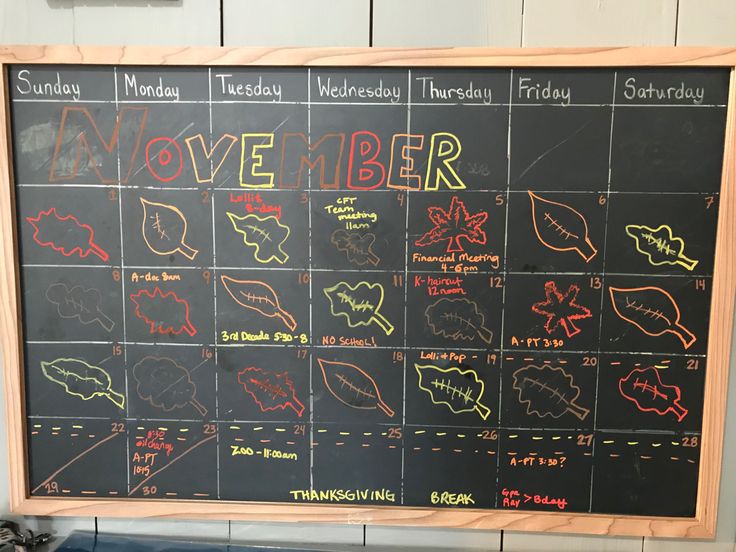 Sunday Monday Tuesday Wednesday Thursday Friday Saturday
NOVEMBER
1 2 3 4 5 6 7
Lolli's
B-day
CFT
Team
meeting
11am
Financial Meeting
4-6pm
8 9 10 11 12 13 14
A-doc 8am
K-haircut
12 noon
3rd Decade 5:30-8
NO SCHOOL!
A-PT 3:30
15 16 17 18 19 20 21
Lolli + Pop -
22 23 24 25 26 27 28
oil change
A-PT
10:15
ZOO-11:00am
A-PT 3:30?
29 30
THANKSGIVING BREAK
Ray > Bday